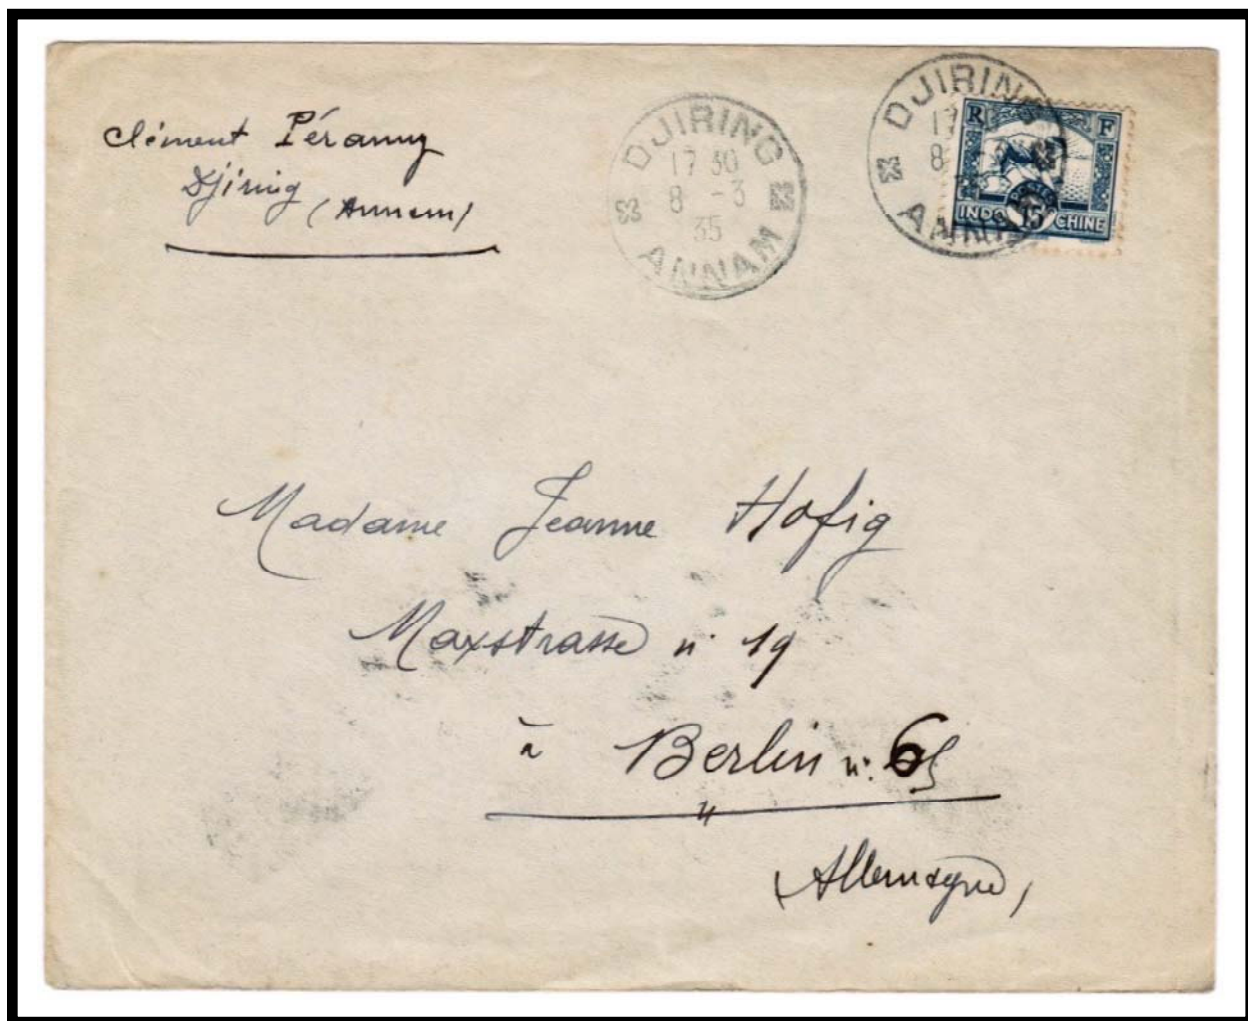 Clément Péramy
Djiring
(Annam)
DJIRING
17 30
8 -3
35
ANNAM
DJIRING
17
8
ANNAM
R F
POSTES
15
INDO CHINE
Madame Jeanne Hofig
Maxstrasse n° 19
à Berlin n° 65
(Allemagne)